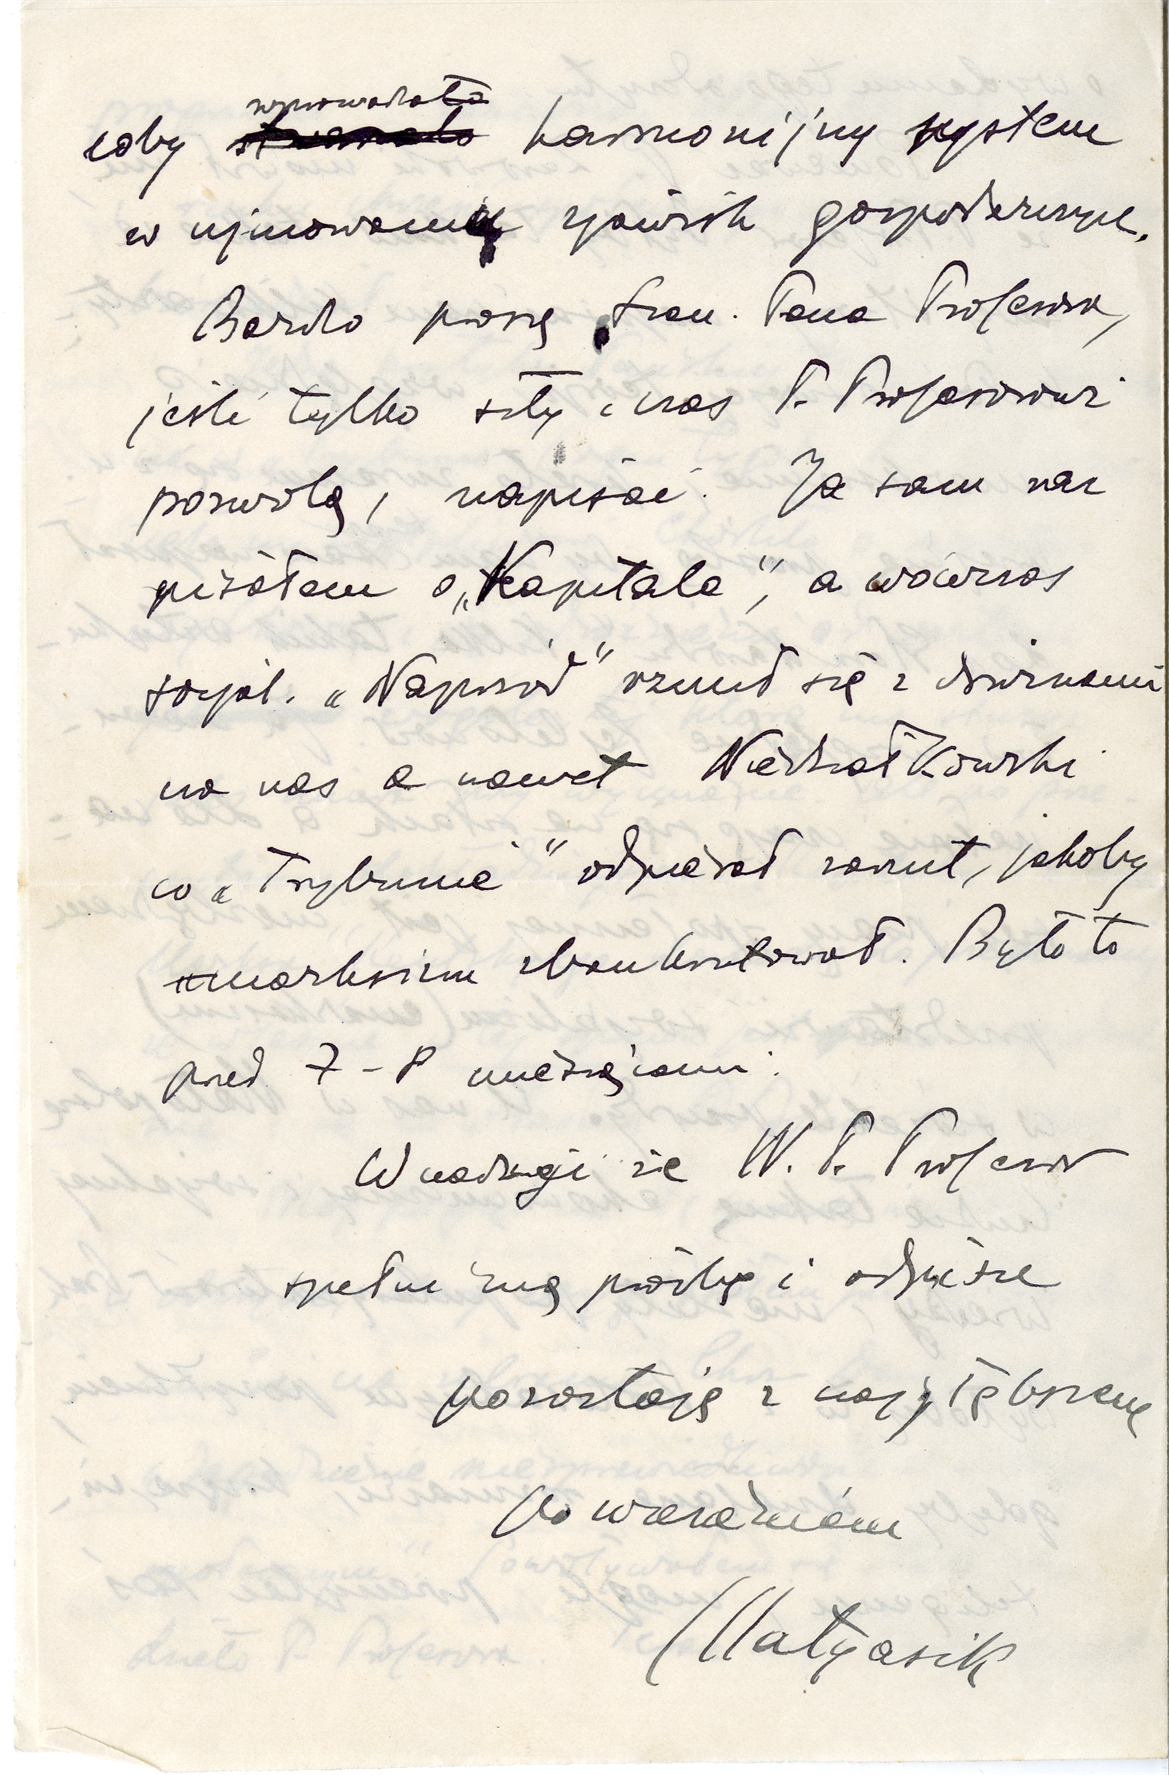 wprowadzała
coby harmonijny system
w ujmowaniu zjawisk gospodarczych.
Bardzo proszę, Szan. Pana Profesora,
jeśli tylko siły i czas P. Profesorowi
pozwolą, napisać. Ja sam raz
pisałem o „Kapitale”, a wówczas
socjal. „Naprzód” rzucił się z drwinami
na nas a nawet Niedziałkowski
w „Trybunie” odpierał zarzut, jakoby
marksizm zbankrutował. Było to
przed 7-8 miesiącami.
W nadzieji że W. P. Profesor
spełni mą prośbę i odpisze
pozostaję z najgłębszem
poważaniem
Matyasik